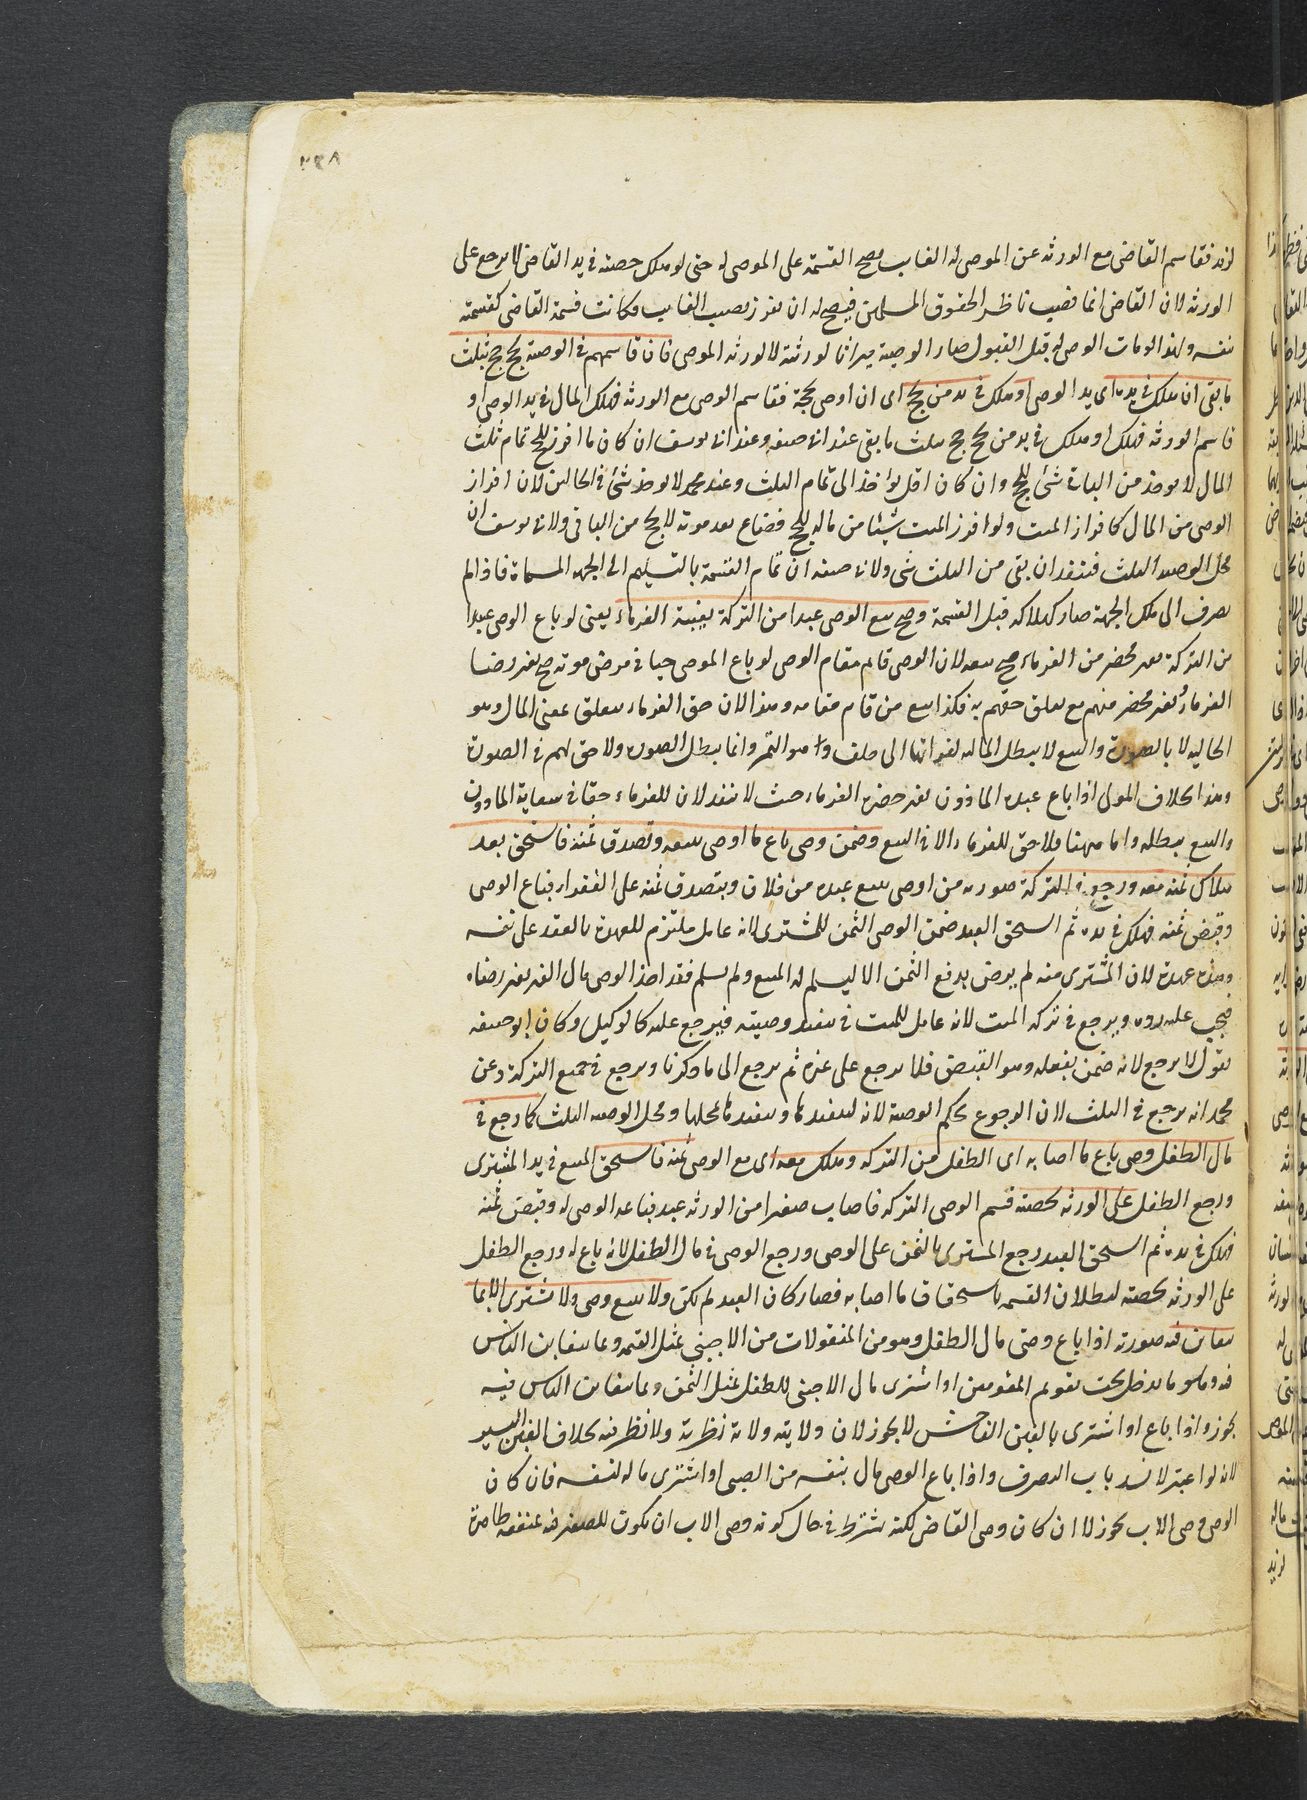 ٢٣٨
لزيد فقاسم القاضى مع الورثه عن الموصى له الغايب يصح القسمة على الموصى له حتى لو هلك حصته فى يد القاضى لا يرجع على
الورثه لان القاضى انما نصب ناظرا لحقوق المسلمين فيصح له ان يفرز نصيب الغايب فكانت قسمة القاضى كقسمته
بنفسه ولهذا لو مات الموصى له قبل القبول صار الوصية ميراثا لورثته لا لورثه الموصى فان قاسمهم فى الوصية بحج حج بثلث
ما بقى ان هلك فى يده اى يد الوصى او هلك فى يد من يحج اى ان اوصى بحجة فقاسم الوصى مع الورثه فهلك المال فى يد الوصى او
قاسم الورثه فهلك او هلك فى يد من يحج حج بثلث ما بقى عند ابى حنيفه وعند ابى يوسف ان كان ما افرز للحج تمام ثلث
المال لا يوخذ من الباقى شئ للحج وان كان اقل يؤاخذ الى تمام الثلث وعند محمد لا يوخذ شئ فى الحالين لان افراز
الوصى من المال كافراز الميت ولو افرز الميت شيئا من ماله للحج فضاع بعد موته لا يحج من الباقى ولابى يوسف ان
محل الوصيه الثلث فينفذ ان بقى من الثلث شى ولابى حنيفه ان تمام القسمة بالتسليم الى الجهه المسماة فاذا لم
يصرف الى تلك الجهة صار كهلاكه قبل القسمة وصح بيع الوصى عبدا من التركة بغيبة الغرماء يعنى لو باع الوصى عبدا
من التركة بغير محضر من الغرماء صح بيعه لان الوصى قايم مقام الوصى لو باع الموصى حيا فى مرض موته صح بغير رضا
الغرماء بغير محضر منهم مع تعلق حقهم به فكذا بيع من قام مقامه وهذا لان حق الغرماء يتعلق بمعنى المال وهو
الماليه لا بالصورة والبيع لا يبطل الماليه لفواتها الى خلف وهو الثمر وانما يبطل الصوره ولا حق لهم فى الصورة
وهذا بخلاف المولى اذا باع عبده الماذون بغير حضرة الغرماء حيث لا ينفذ لان للغرماء حقا فى سعاية الماذون
والبيع يبطله واما ههنا فلا حق للغرماء الا فى البيع وضمن وصى باع ما اوصى ببيعه وتصدق ثمنه فاستحق بعد
هلاك ثمنه معه ورجع فى التركة صورته من اوصى ببيع عبده من فلان ويتصدق ثمنه على الفقراء فباع الوصى
وقبض ثمنه فهلك فى يده ثم استحق العبد ضمن الوصى الثمن للمشترى لانه عامل ملتزم للعهدة بالعقد على نفسه
وهذه عهدة لان المشترى منه لم يرض بدفع الثمن الا ليسلم له المبيع ولم يسلم فقد اخذ الوصى مال الغير بغير رضاه
فيجب عليه رده ويرجع فى تركه الميت لانه عامل للميت فى تنفيذ وصيته فيرجع عليه كالوكيل وكان ابو حنيفه
يقول لا يرجع لانه ضمن بفعله وهو القبض فلا يرجع على غيره ثم يرجع الى ما ذكرنا ويرجع فى جميع التركة وعن
محمد انه يرجع فى الثلث لان الرجوع بحكم الوصية لانه لتنفيذها وتنفيذها بمحلها ومحل الوصيه الثلث كما رجع فى
مال الطفل وصى باع ما اصابه اى الطفل من التركه وهلك معه اى مع الوصى ثمنه فاستحق المبيع فى يد المشترى
ورجع الطفل على الورثه بحصته قسم الوصى التركه فاصاب صغيرا من الورثه عبد فباعه الوصى له وقبض ثمنه
فهلك فى يده ثم استحق العبد رجع المشترى بالثمن على الوصى ورجع الوصى فى مال الطفل لانه باع له ورجع الطفل
على الورثه بحصته لبطلان القسمه باستحقاق ما اصابه فصار كان العبد لم يكن ولا يبيع وصى ولا يشترى الا بما
يتغابن فيه صورته اذا باع وصى مال الطفل وهو من المنقولات من الاجنبى بمثل القيمه وبما يتغابن الناس
فيه وهو ما يدخل تحت تقويم المقومين او اشترى مال الاجنبى للطفل بمثل الثمن وبما يتغابن الناس فيه
يجوز واذا باع او اشترى بالغبن الفاحش لا يجوز لان ولايته ولاية نظرية ولا نظر فيه بخلاف الغبن اليسير
لانه لو اعتبر لانسد باب التصرف واذا باع الوصى مال بنفسه من الصبى او اشترى ماله لنفسه فان كان
الوصى وصى الاب يجوز لا ان كان وصى القاضى لكنه يشترط فى حال كونه وصى الاب ان يكون للصغير فيه منفعة ظاهرة